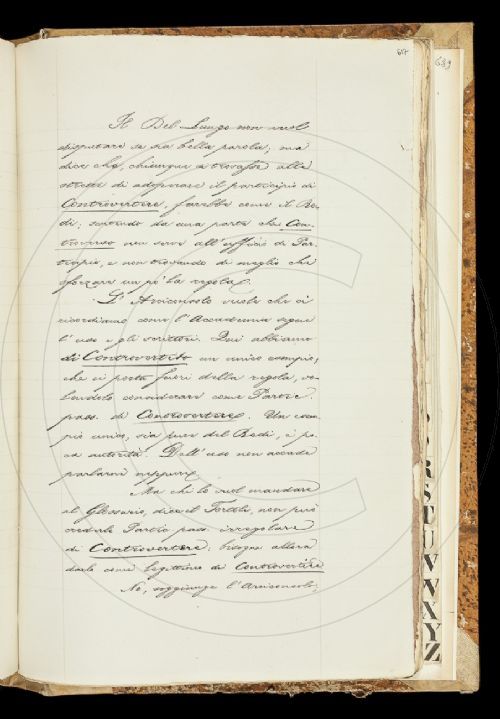 617
639
Il Del Lungo non vuol
disputare se sia bella parola; ma
dice che, chiunque si trovasse alle
strette di adoperare il participio di
Controvertere, farebbe come il Re-
di; sentendo da una parte che Con-
troverso non serve all'uffizio di Par-
ticipio, e non trovando di meglio che
sforzare un po' la regola.
L'Arciconsolo vuole che ci
ricordiamo come l'Accademia segue
l'uso e gli scrittori. Qui abbiamo
di Controvertito un unico esempio,
che ci porta fuori della regola, vo-
lendolo considerare come Partic.
pass. di Controvertere. Un esem-
pio unico, sia pure del Redi, è po-
ca autorità. Dell'uso non accade
parlarne neppure.
Ma chi lo vuol mandare
al Glossario, dice il Tortoli, non può
crederlo Partic. pass. irregolare
di Controvertere, bisogna allora
darlo come legittimo di Controvertire
No, soggiunge l'Arciconsolo,
R
S
T
U
V
W
X
Y
Z